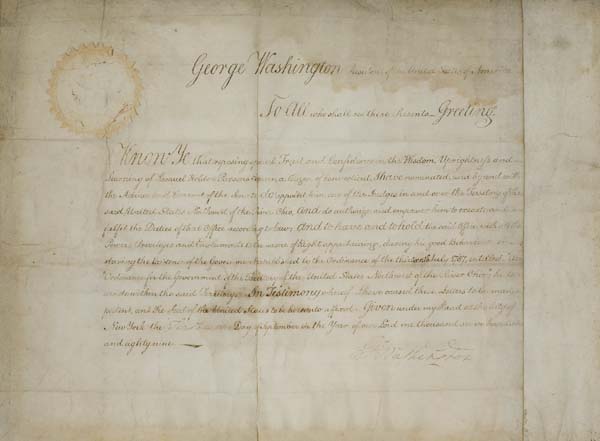 George Washington President of the United States of America
To All who shall see these Presents Greeting
Know Ye that reposing special Trust and Confidence in the Wisdom, Uprightness and
Learning of Samuel Holden Parsons a Citizen of Connecticut, I have nominated, and by and with
the Advice and Consent of the Senate do appoint him one of the Judges in and over the Territory of the
said United States North West of the River Ohio, and do authorize and empower him to execute and
fulfil the Duties of that Office according to law; and to have and to hold the said Office with all the
Powers, Privileges and Emoluments to the same of Right appertaining, during his good behaviour or
during the existence of the Government established by the Ordinance of the July 1787, entitled, "An
Ordinance for the Government of the Territory of the United States Northwest of the River Ohio," he to
reside within the said Territory. In Testimony whereof I have caused these Letters to be made
patent, and the Seal of the United States to be hereunto affixed. Given under my Hand at the City of
New York the Day of September in the Year of our Lord one thousand seven hundred
and eighty nine
G Washington